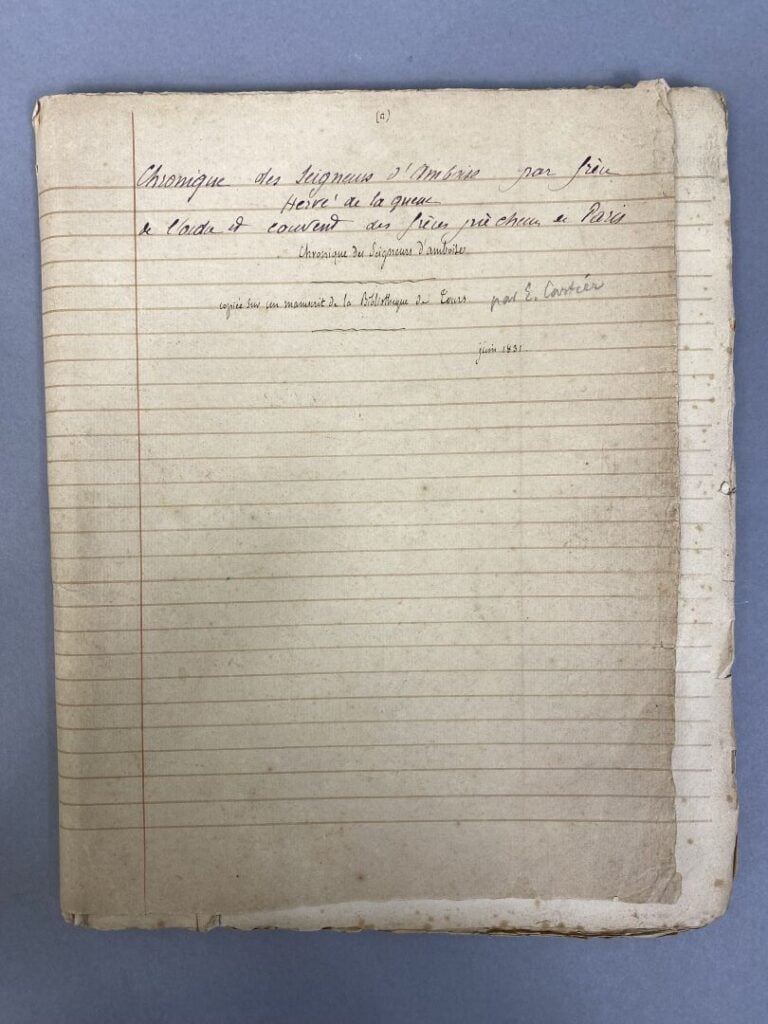 (a)
Chronique des Seigneurs d'Amboise par frère
Hervé de la queue
de l'ordre et couvent des frères prêcheurs de Paris
Chronique des Seigneurs d'amboise
copiée sur un manuscrit de la Bibliothèque de Tours par E. Cartier
juin 1831.